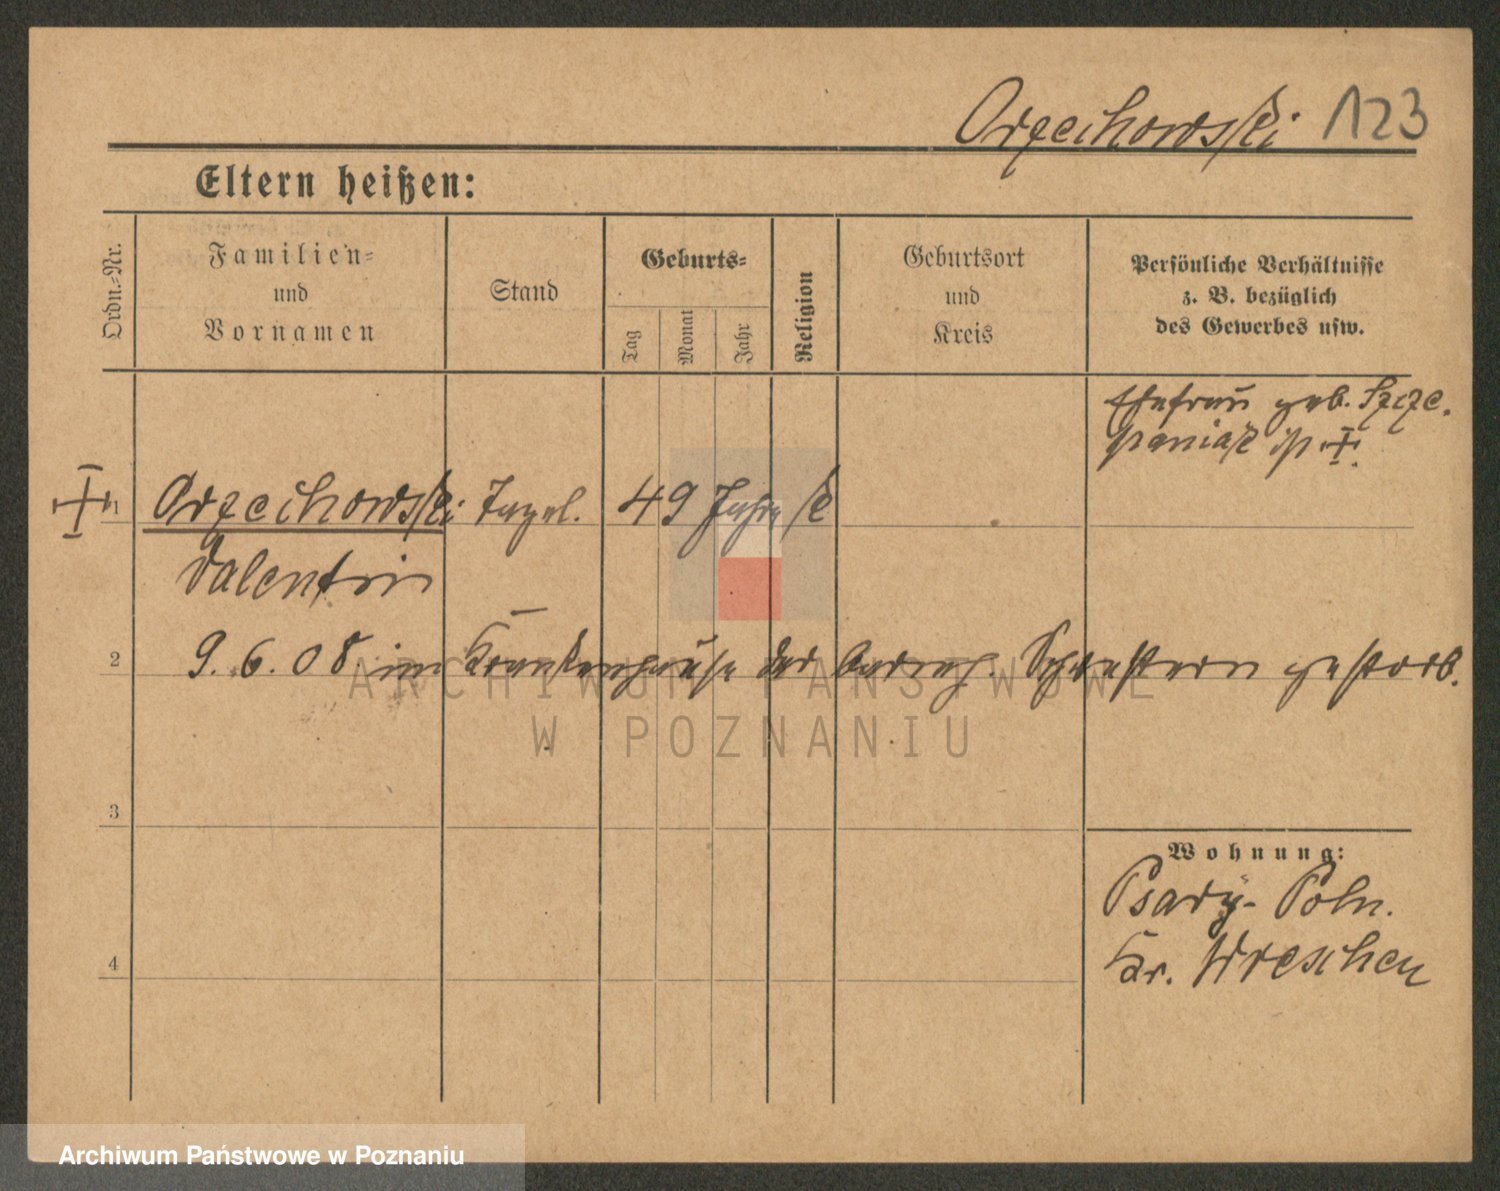 Orzechowski 123
Eltern heißen:
Ordn.-Nr.
Familien-
und
Vornamen
Stand
Geburts-
Tag
Monat
Jahr
Religion
Geburtsort
und
Kreis
Persönliche Verhältnisse
z. B. bezüglich
des Gewerbes usw.
Ehefrau geb. Szcze-
paniak ist †.
† 1 Orzechowski Tagel. 49 Jahre k
Valentin
2 9.6.08 im Krankenhause der barmh. Schwestern gestorb.
3
Wohnung:
Psary-Poln.
4 Kr. Wreschen
ARCHIWUM PAŃSTWOWE
W POZNANIU
Archiwum Państwowe w Poznaniu